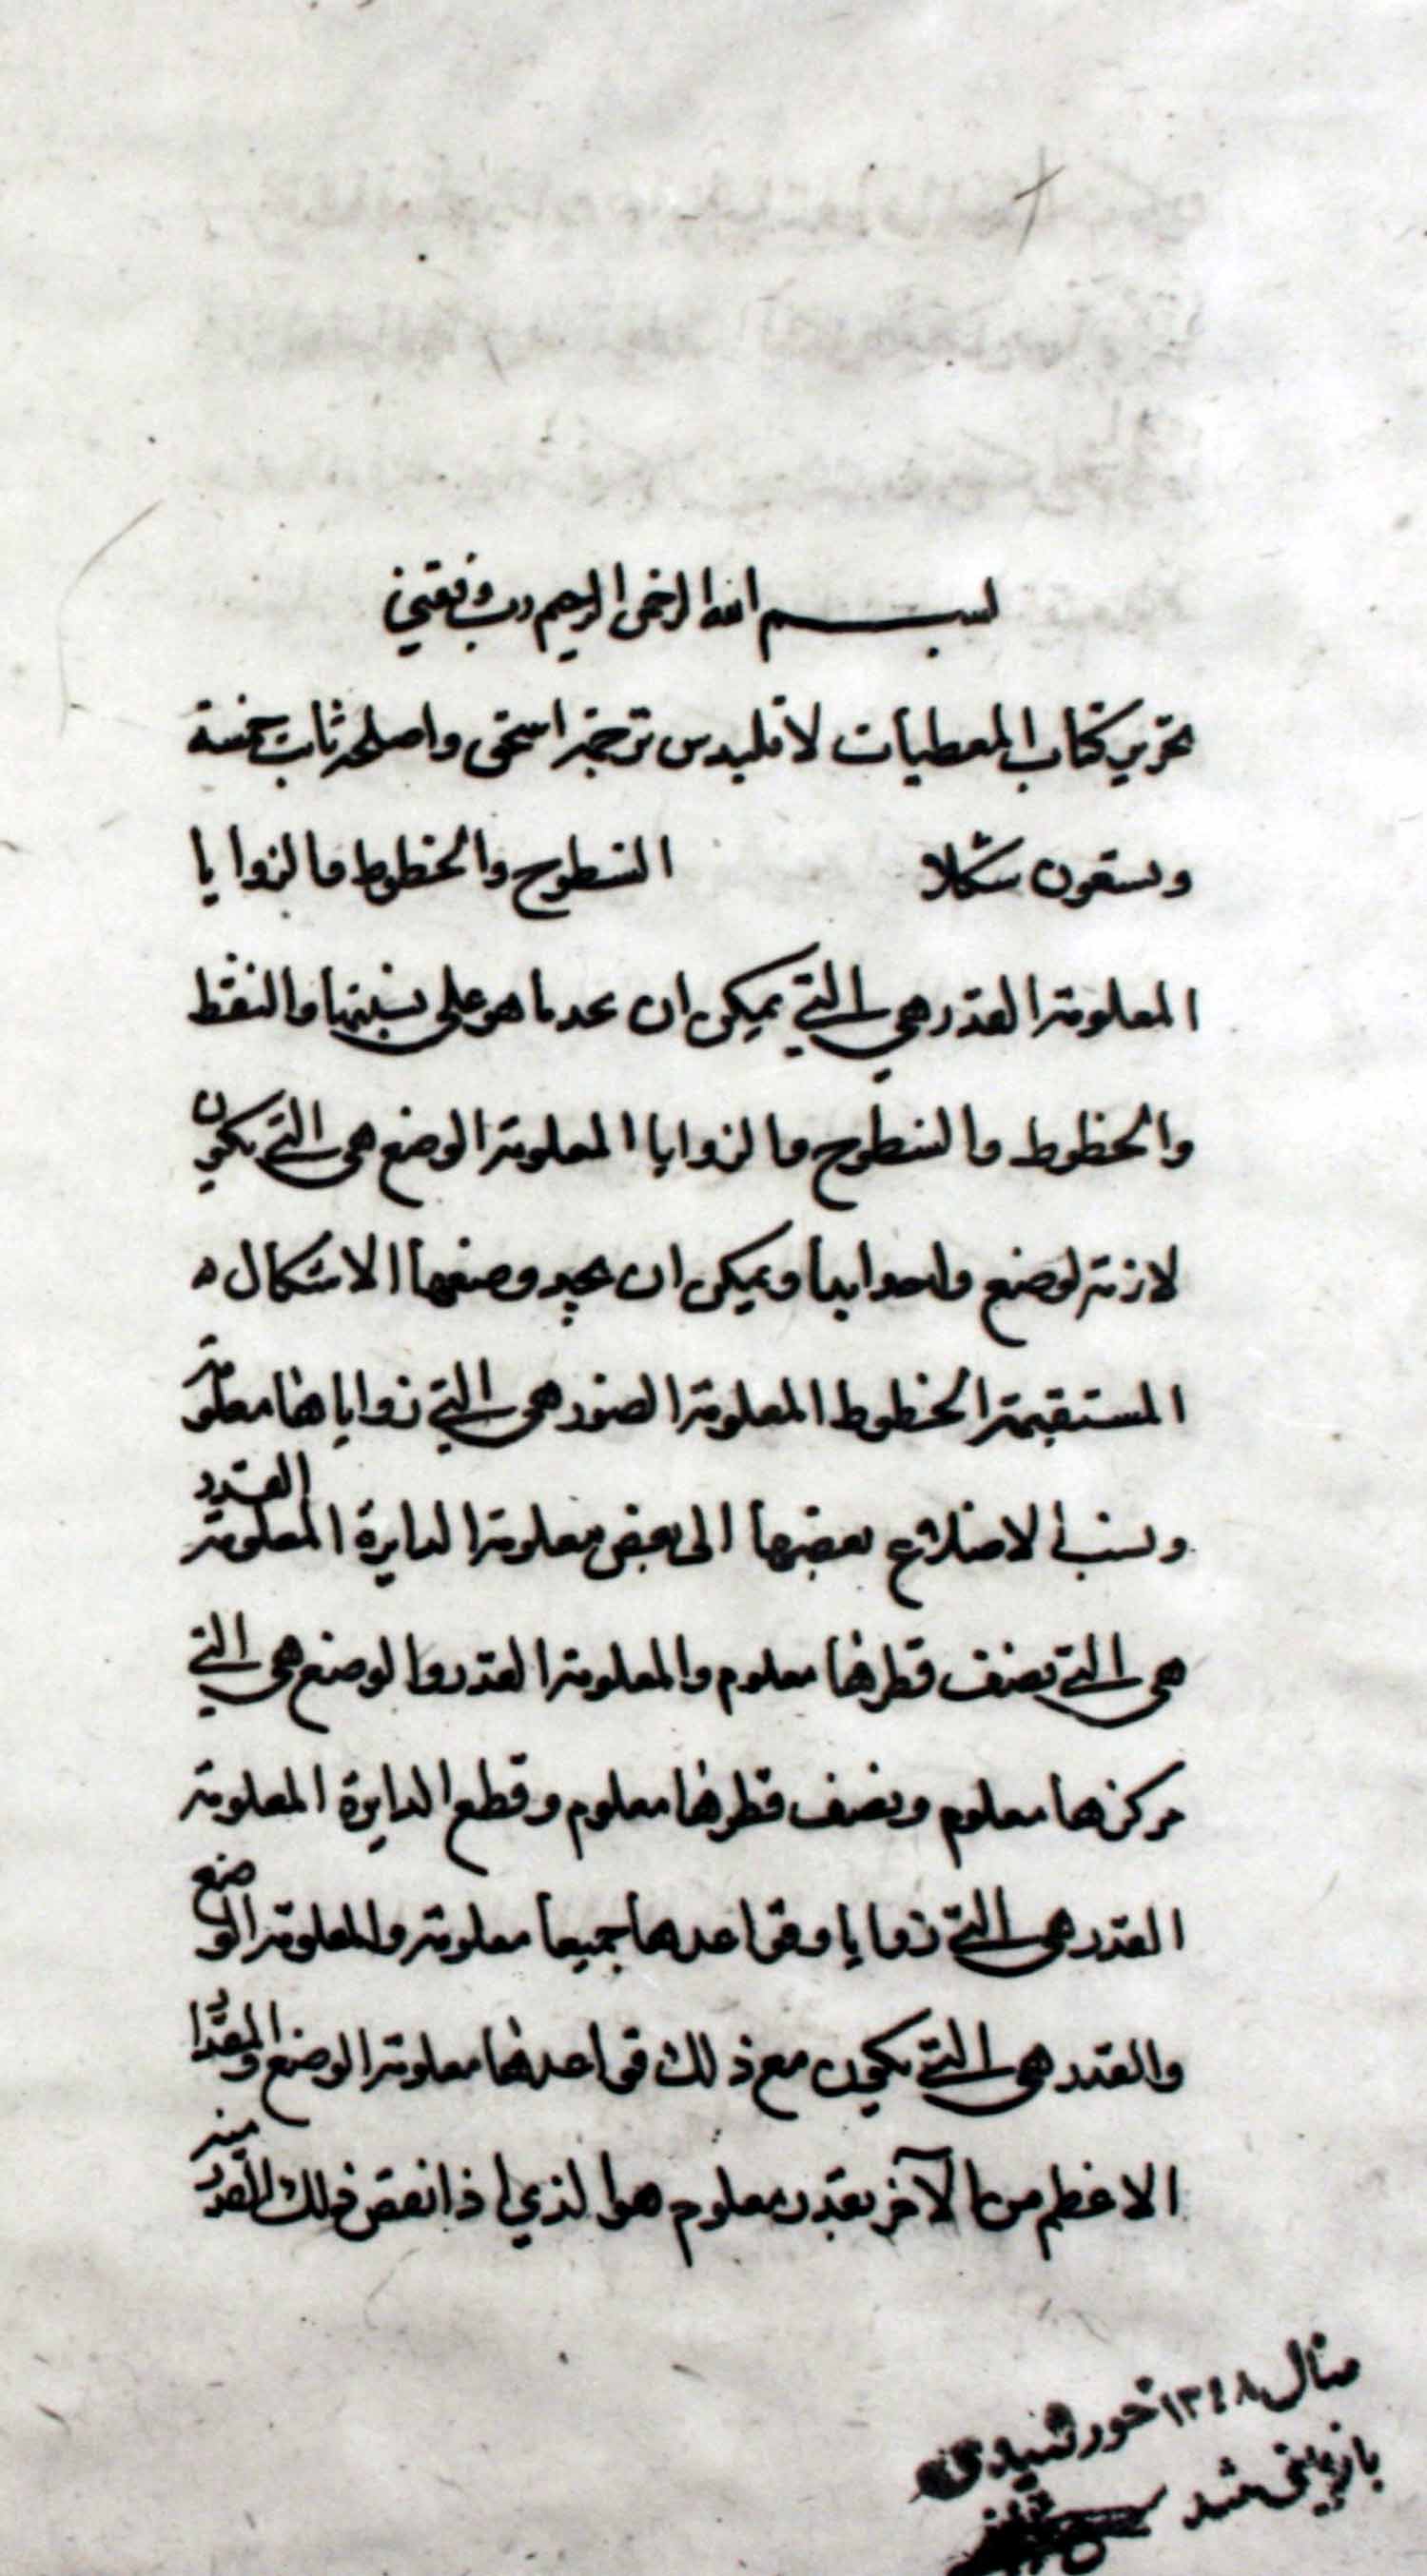 بسم الله الرحمن الرحيم رب وفقني
تحرير كتاب المعطيات لاقليدس ترجمة اسحق واصلحه ثابت خمسة
وتسعون شكلا السطوح والخطوط والزوايا
المعلومة القدر هي التي يمكن ان نجد ما هو على نسبتها والنقط
والخطوط والسطوح والزوايا المعلومة الوضع هي التي يكون
لازمة لوضع واحد ابدا ويمكن ان نجد وضعها الاشكال
المستقيمة الخطوط المعلومة الصور هي التي زواياها معلومة
ونسب الاضلاع بعضها الى بعض معلومة الدايرة المعلومة القدر
هي التي نصف قطرها معلوم والمعلومة القدر والوضع هي التي
مركزها معلوم ونصف قطرها معلوم وقطع الدايرة المعلومة
القدر هي التي زوايا وقواعدها جميعا معلومة والمعلومة الوضع
والقدر هي التي يكون مع ذلك قواعدها معلومة الوضع والمقدار
الاعظم من الآخر بقدر معلوم هو الذي اذا نقص ذلك القدر منه
سال ۱۳۴۸ خورشيدى
بازبينى شد